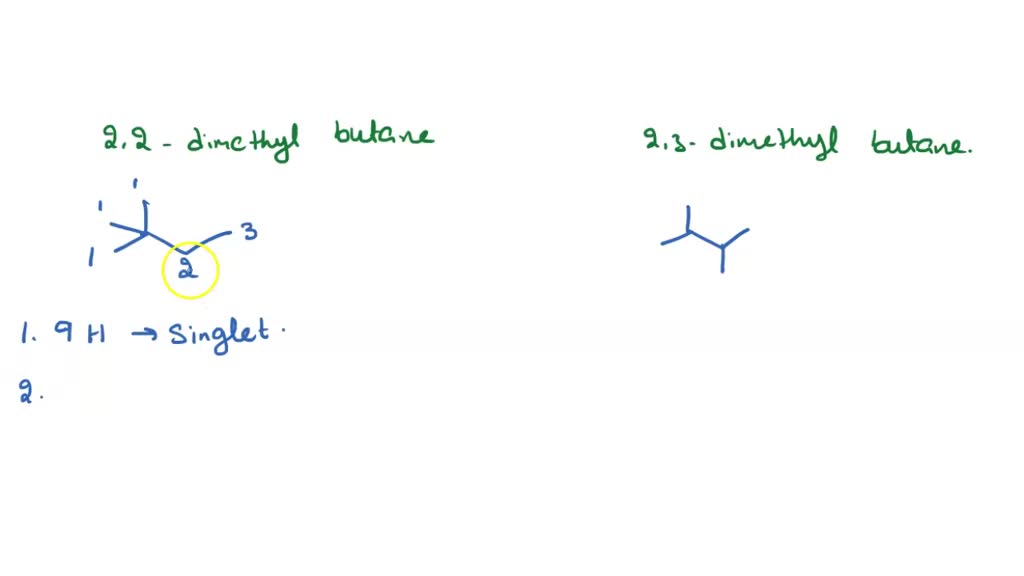 2,2 - dimethyl butane
2,3- dimethyl butane.
1
1
1
3
2
1. 9 H → Singlet.
2.